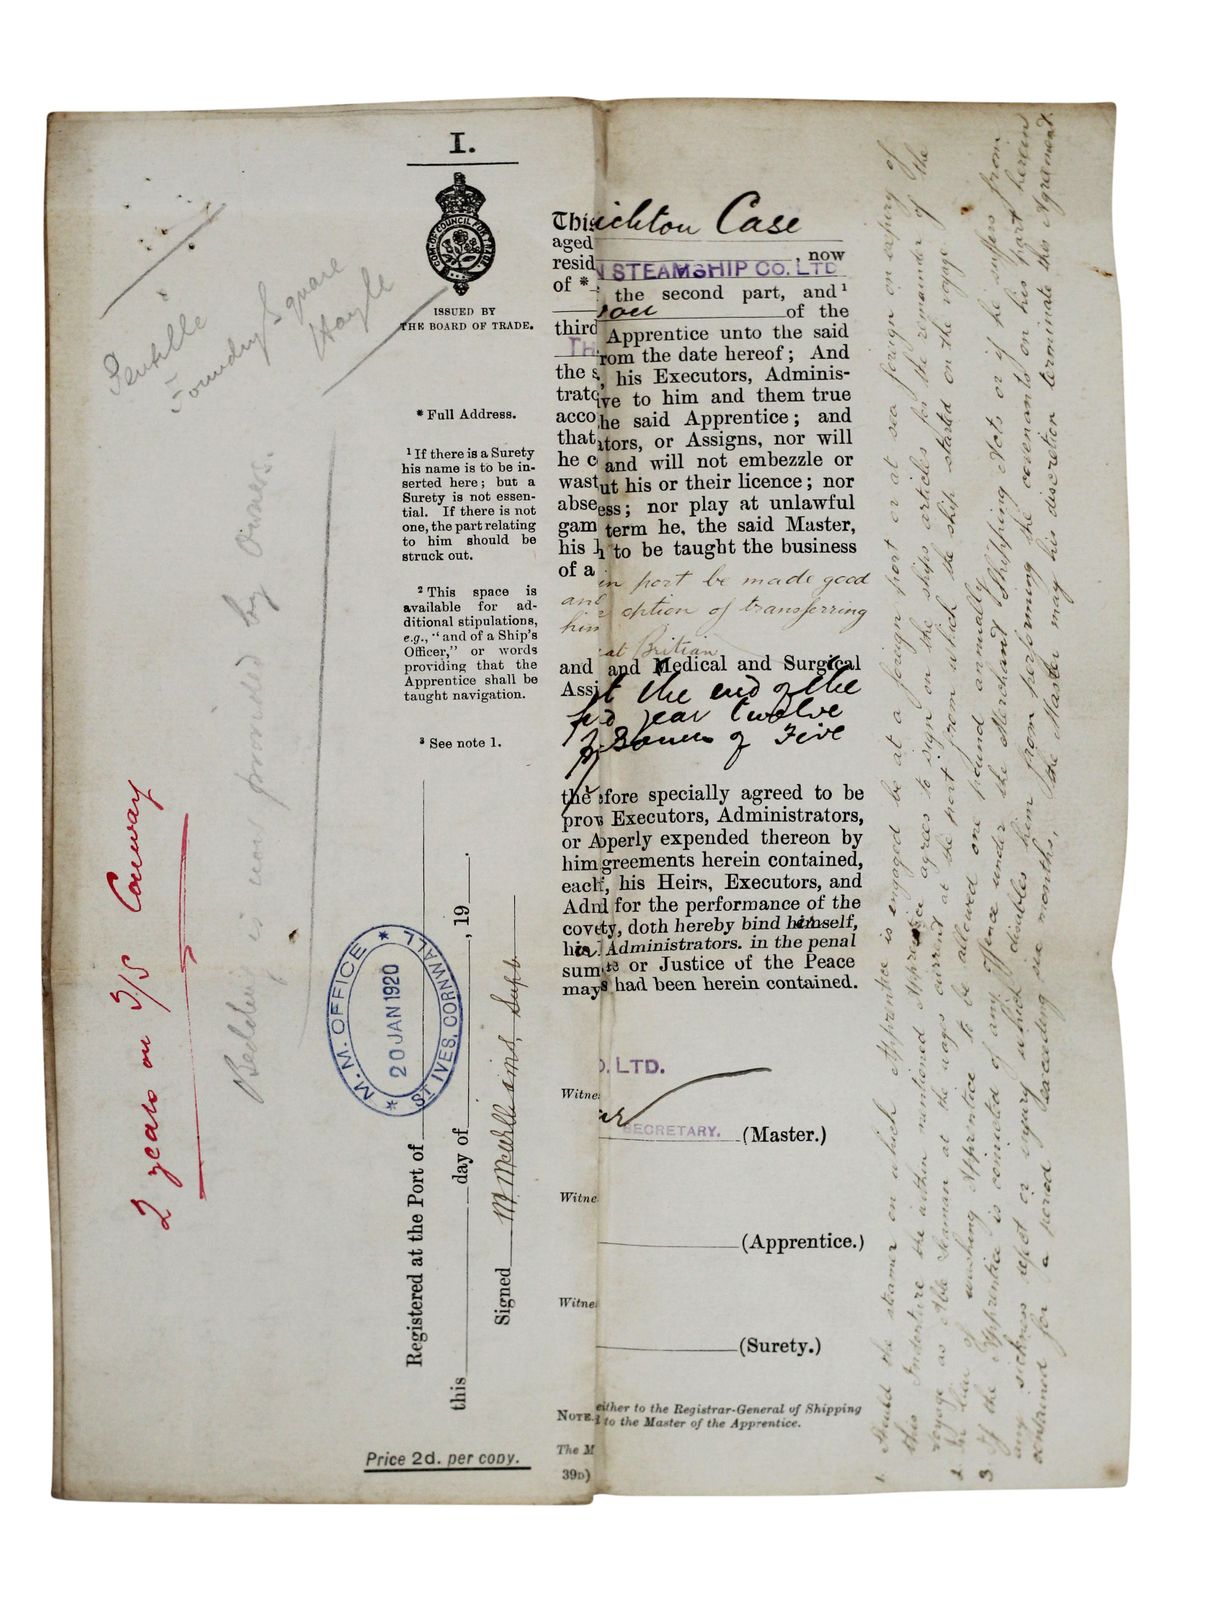 I.
COM. OF COUNCIL FOR TRADE.
ISSUED BY
THE BOARD OF TRADE.
* Full Address.
¹ If there is a Surety
his name is to be in-
serted here; but a
Surety is not essen-
tial. If there is not
one, the part relating
to him should be
struck out.
² This space is
available for ad-
ditional stipulations,
e.g., "and of a Ship's
Officer," or words
providing that the
Apprentice shall be
taught navigation.
³ See note 1.
Foundry Square
Hayle
Bedding is now provided by Owners.
2 years on S/S Conway
M. M. OFFICE
20 JAN 1920
ST IVES, CORNWALL
Registered at the Port of
this day of , 19 .
Signed M McWilliams, Supt
Price 2d. per copy.
This
aged
resid
of *
third
TH
the s
trato
acco
that
he c
wast
abse
gam
his h
of a
and
him
and
Assi
the
prov
or A
him
each
Adm
cove
his
sum
may
Witne
Witne
Witne
NOTE.
The M
39D)
ichton Case
, now
N STEAMSHIP CO. LTD
the second part, and ¹
of the
Apprentice unto the said
rom the date hereof; And
, his Executors, Adminis-
ive to him and them true
he said Apprentice; and
ators, or Assigns, nor will
and will not embezzle or
ut his or their licence; nor
ess; nor play at unlawful
term he, the said Master,
to be taught the business
in port be made good
option of transferring
at Britian
and Medical and Surgical
t the end of the
year twelve
of Five
efore specially agreed to be
Executors, Administrators,
perly expended thereon by
greements herein contained,
f, his Heirs, Executors, and
l for the performance of the
ty, doth hereby bind himself,
Administrators. in the penal
te or Justice of the Peace
s had been herein contained.
O. LTD.
SECRETARY. (Master.)
(Apprentice.)
(Surety.)
either to the Registrar-General of Shipping
d to the Master of the Apprentice.
1. Should the steamer on which Apprentice is engaged be at a foreign port or at sea foreign on expiry of
this Indenture the within mentioned Apprentice agrees to sign on the ships articles for the remainder of the
voyage as Able Seaman at the wages current at the port from which the ship started on the voyage
2. In lieu of washing Apprentice to be allowed one pound annually
3. If the Apprentice is convicted of any offence under the Merchant Shipping Acts or if he suffers from
any sickness or injury which disables him from performing the covenants on his part herein
contained for a period exceeding six months, the Master may at his discretion terminate this Agreement.